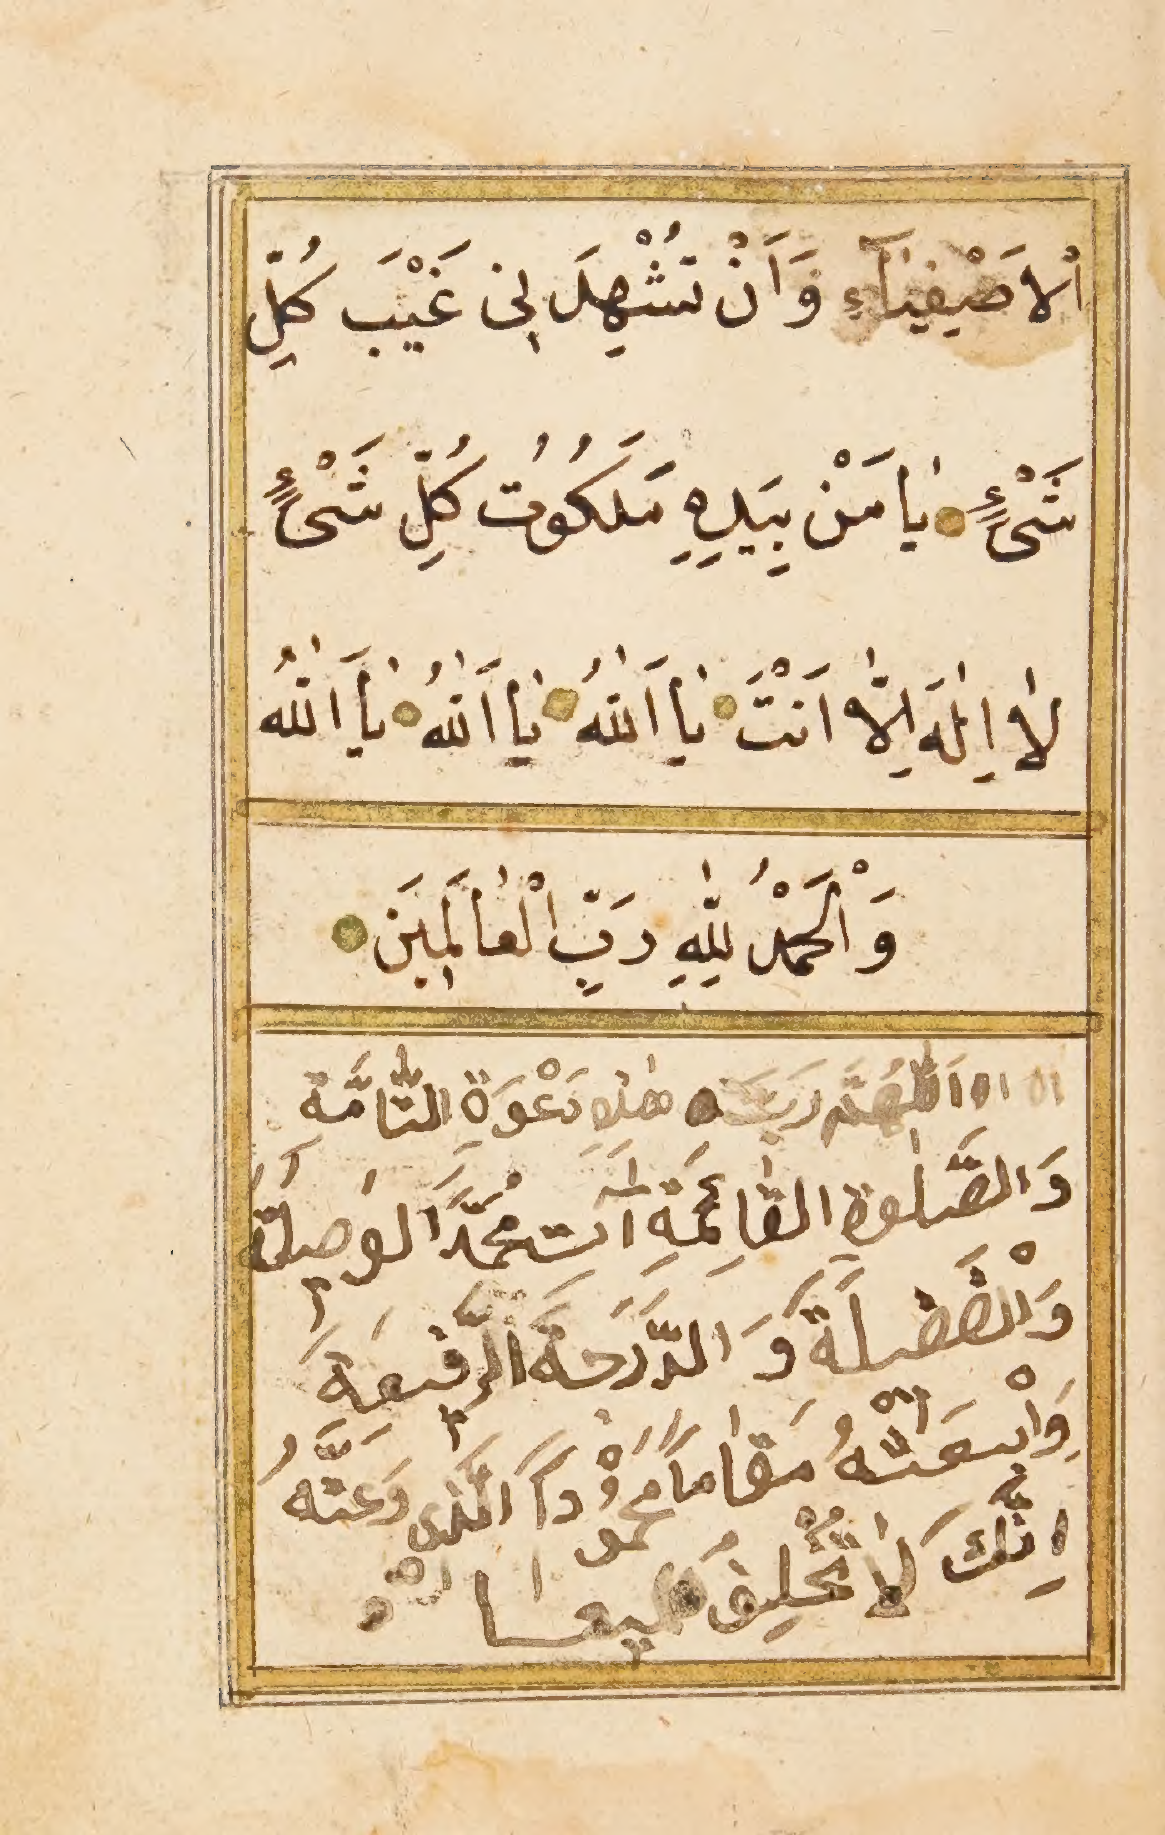 اْلاَصْفِيَآءِ وَاَنْ تُشْهِدَنِى غَيْبَ كُلِّ
شَىْءٍ يَا مَنْ بِيَدِهِ مَلَكُوُتُ كُلِّ شَىْءٍ
لَا اِلٰهَ اِلَّا اَنْتَ يَا اَللّٰهُ يَا اَللّٰهُ يَا اَللّٰهُ
وَاْلحَمْدُ لِلّٰهِ رَبِّ الْعَالَمِينَ
اَللّٰهُمَّ رَبَّ هٰذِهِ دَعْوَةِ التَّامَّةِ
وَالصَّلٰوةِ القَائِمَةِ آت مُحَمَّدًا الوَصِلَةَ
وَالْفَضِلَةَ وَ الدَّرَجَةَ الرَّفِيعَةَ
وَابْعَثْهُ مَقَامًا مَحْمُودًا الَّذى وَعَتَّهُ
اِنَّكَ لَا تُخْلِفُ الميعا